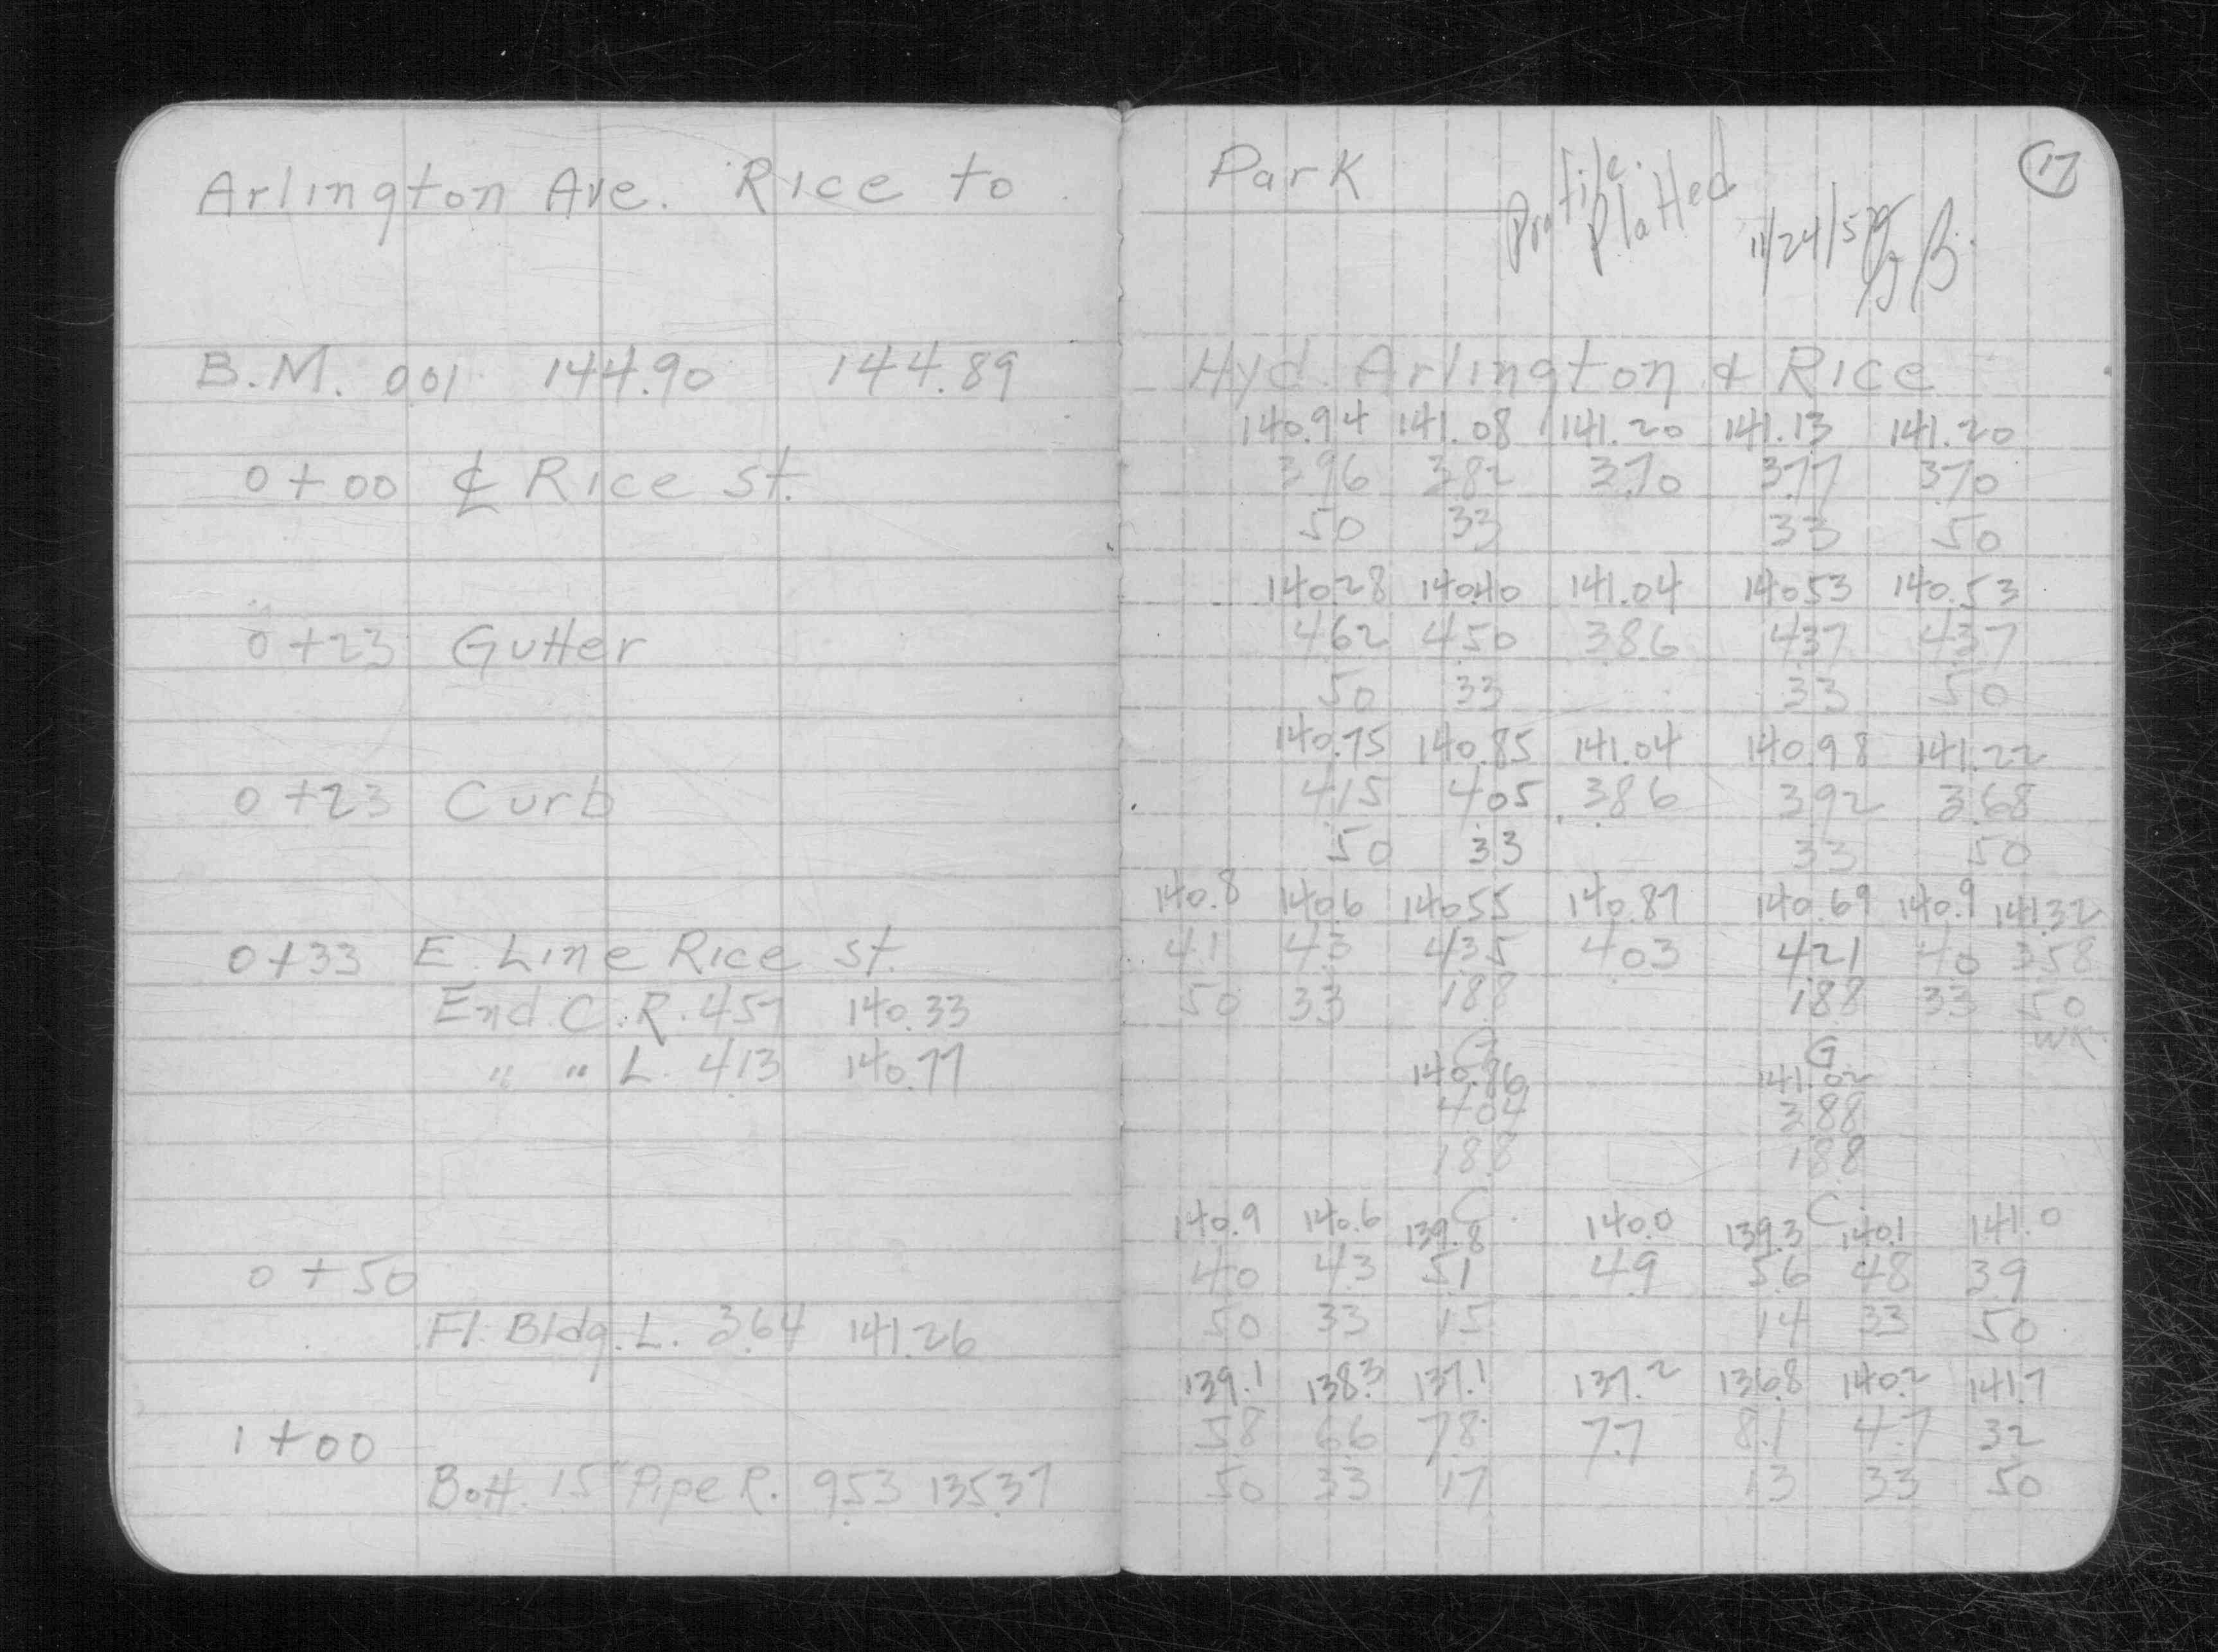 Arlington Ave. Rice to
B.M. 0.01 144.90 144.89
0+00 ℄ Rice St.
0+23 Gutter
0+23 Curb
0+33 E. Line Rice St.
End. C. R. 4.57 140.33
" " L. 4.13 140.77
0+50
Fl. Bldg. L. 3.64 141.26
1+00
Bott. 15" Pipe R. 9.53 135.37
Park
17
Profile
Platted
11/24/59
Hyd. Arlington & Rice
140.94 141.08 141.20 141.13 141.20
3.96 3.82 3.70 3.77 3.70
50 33 33 50
140.28 140.40 141.04 140.53 140.53
4.62 4.50 3.86 4.37 4.37
50 33 33 50
140.75 140.85 141.04 140.98 141.22
4.15 4.05 3.86 3.92 3.68
50 33 33 50
140.8 140.6 140.55 140.87 140.69 140.9 141.32
4.1 4.3 4.35 4.03 4.21 4.0 3.58
50 33 18.8 18.8 33 50
G G WK.
140.86 141.02
4.04 3.88
18.8 18.8
C. C.
140.9 140.6 139.8 140.0 139.3 140.1 141.0
4.0 4.3 5.1 4.9 5.6 4.8 3.9
50 33 15 14 33 50
139.1 138.3 137.1 137.2 136.8 140.2 141.7
5.8 6.6 7.8 7.7 8.1 4.7 3.2
50 33 17 13 33 50